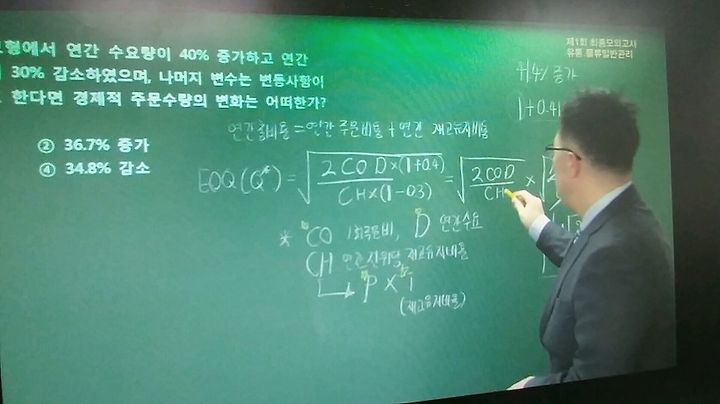 형에서 연간 수요량이 40% 증가하고 연간
30% 감소하였으며, 나머지 변수는 변동사항이
한다면 경제적 주문수량의 변화는 어떠한가?
② 36.7% 증가
④ 34.8% 감소
제1회 최종모의고사
유통·물류일반관리
증가
1+0.4
연간총비용 = 연간 주문비용 + 연간 재고유지비용
EOQ(Q*) = √ 2 CO D×(1+0.4) / CH×(1-0.3) = √ 2COD / CH ×
* CO 1회주문비, D 연간수요
CH 연간단위당 재고유지비용
↳ P × i
(재고유지비율)